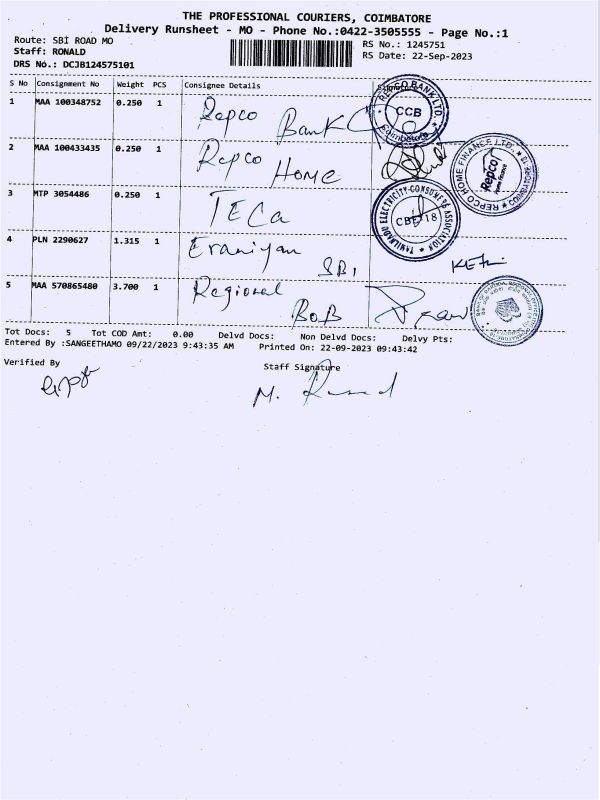 THE PROFESSIONAL COURIERS, COIMBATORE
Delivery Runsheet - MO - Phone No.:0422-3505555 - Page No.:1
Route: SBI ROAD MO
RS No.: 1245751
Staff: RONALD
RS Date: 22-Sep-2023
DRS No.: DCJB124575101
S No Consignment No Weight PCS Consignee Details Signature
1 MAA 100348752 0.250 1 Repco Bank
REPCO BANK LTD. CCB Coimbatore
2 MAA 100433435 0.250 1 Repco Home
REPCO HOME FINANCE LTD. Repco Home Finance
3 MTP 3054486 0.250 1 TECA
TAMILNADU ELECTRICITY CONSUMERS ASSOCIATION CBE-18
4 PLN 2290627 1.315 1 Eraniyan SBI
5 MAA 570865480 3.700 1 Regional BOB
Tot Docs: 5 Tot COD Amt: 0.00 Delvd Docs: Non Delvd Docs: Delvy Pts:
Entered By :SANGEETHAMO 09/22/2023 9:43:35 AM Printed On: 22-09-2023 09:43:42
Verified By
Staff Signature